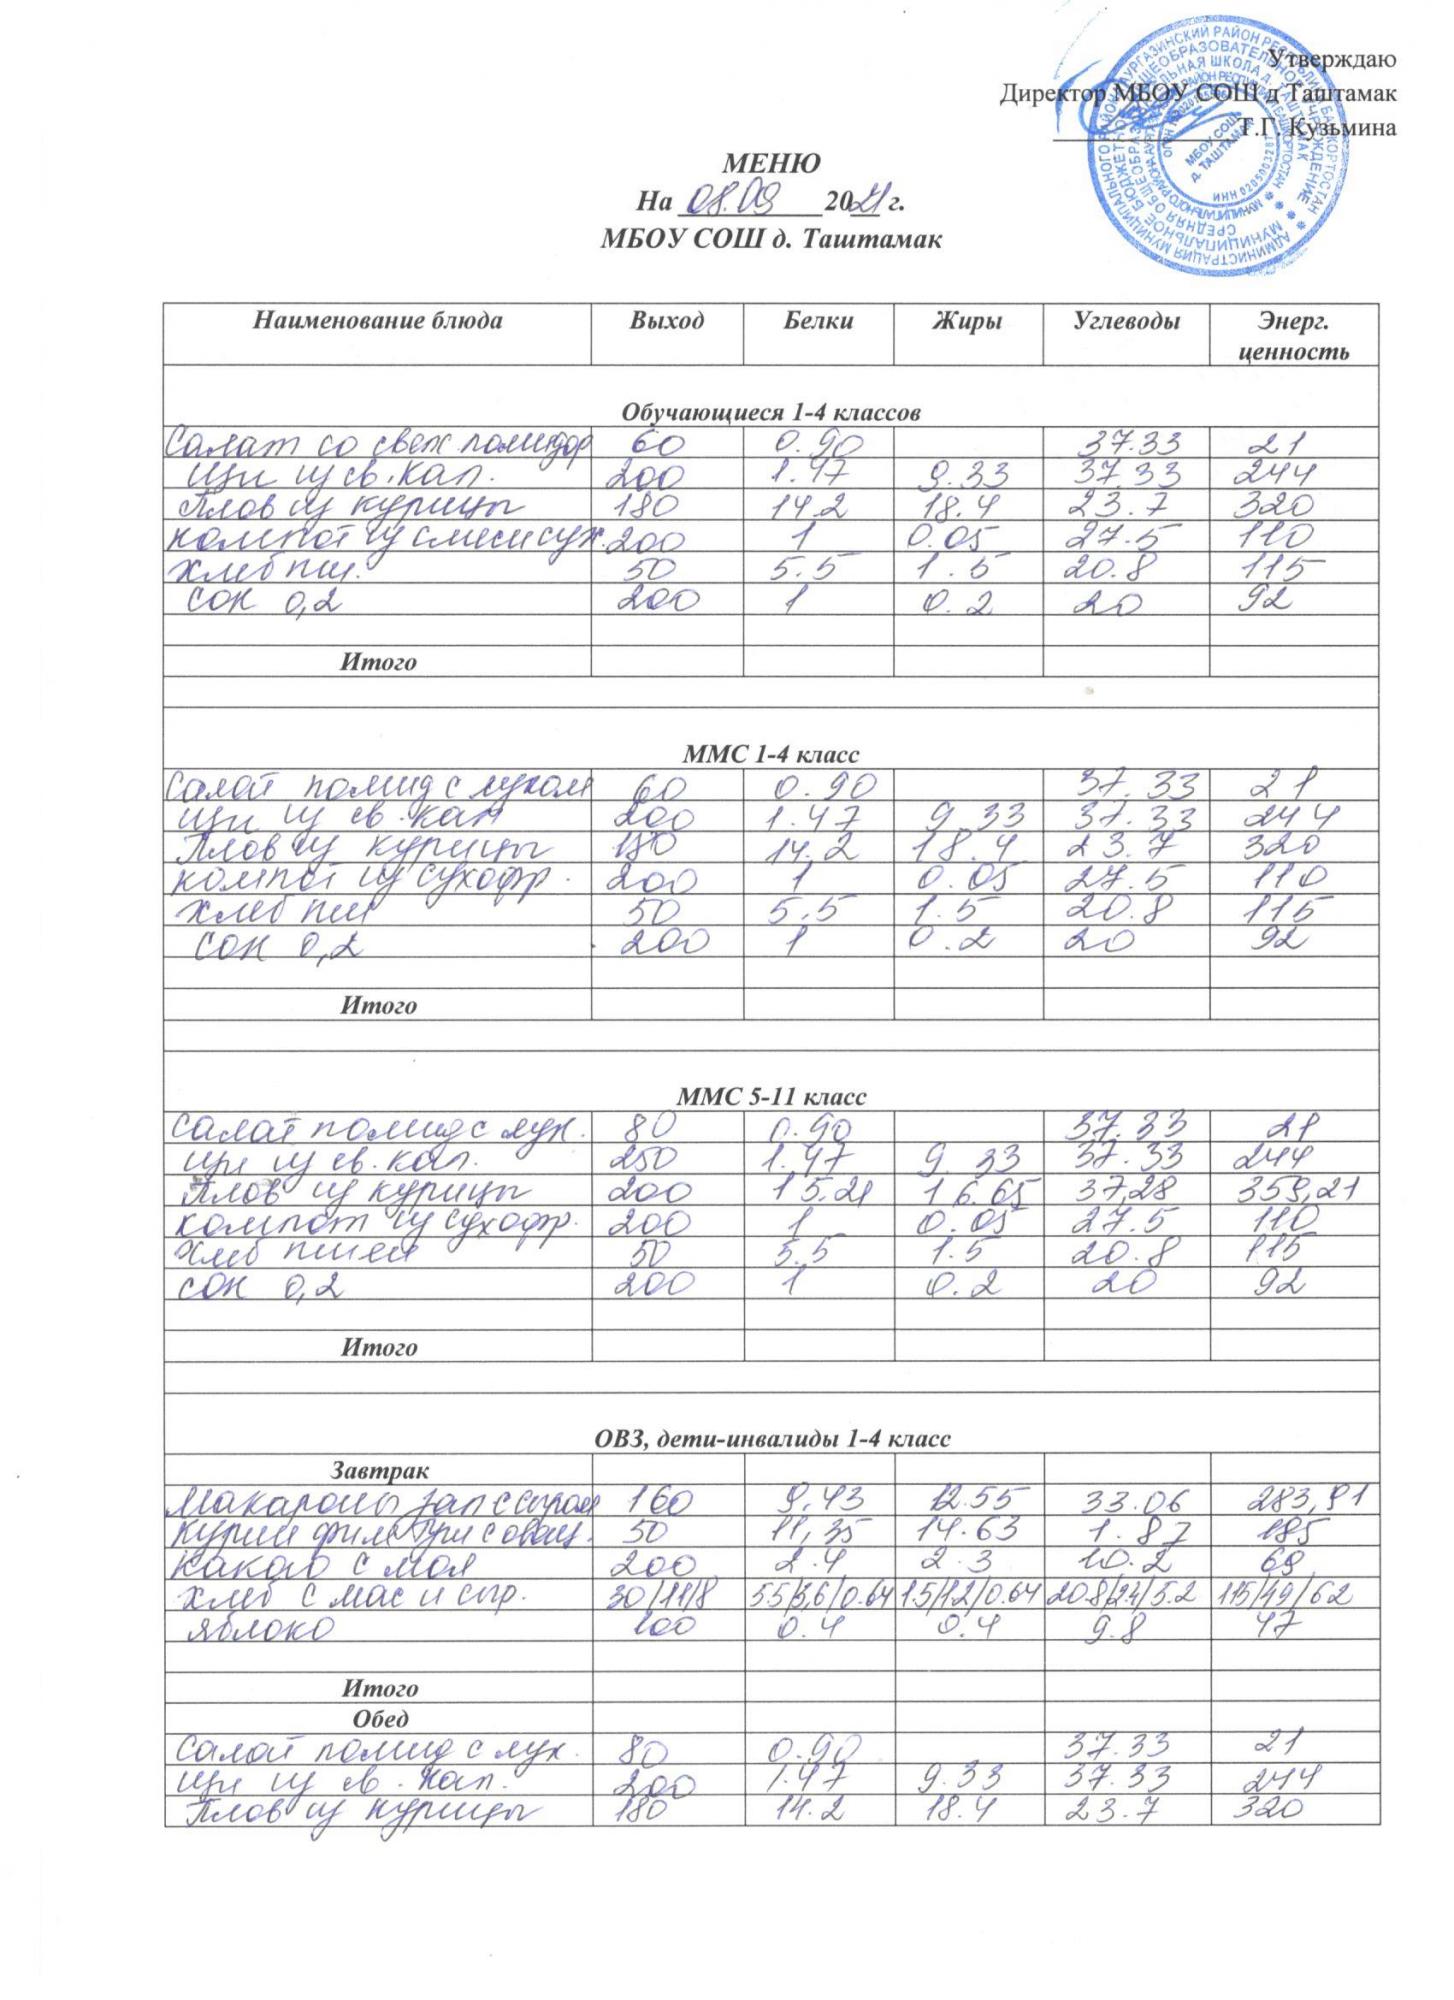 Утверждаю
Директор МБОУ СОШ д Таштамак
Т.Г. Кузьмина
МЕНЮ
На 08.09 2021 г.
МБОУ СОШ д. Таштамак
Наименование блюда Выход Белки Жиры Углеводы Энерг. ценность
Обучающиеся 1-4 классов
Салат со свеж помидор 60 0.90 37.33 21
Щи из св. кап. 200 1.47 9.33 37.33 244
Плов из курицы 180 14.2 18.4 23.7 320
компот из смеси сух. 200 1 0.05 27.5 110
Хлеб пш. 50 5.5 1.5 20.8 115
сок 0,2 200 1 0.2 20 92
Итого
ММС 1-4 класс
Салат помид с луком 60 0.90 37.33 21
щи из св. кап 200 1.47 9.33 37.33 244
Плов из курицы 180 14.2 18.4 23.7 320
компот из сухофр. 200 1 0.05 27.5 110
Хлеб пш 50 5.5 1.5 20.8 115
сок 0,2 200 1 0.2 20 92
Итого
ММС 5-11 класс
Салат помид с лук. 80 0.90 37.33 21
щи из св. кап. 250 1.47 9.33 37.33 244
Плов из курицы 200 15.21 16.65 37,28 359,21
компот из сухофр. 200 1 0.05 27.5 110
Хлеб пшен 50 5.5 1.5 20.8 115
сок 0,2 200 1 0.2 20 92
Итого
ОВЗ, дети-инвалиды 1-4 класс
Завтрак
Макароны зап с сыром 160 9,43 12.55 33.06 283,91
Курин филе 50 11,35 14.63 1.87 185
какао с мол 200 2.4 2.3 10.2 69
Хлеб с мас и сыр. 30/11/8 5.5/3,6/0.64 1.5/1.2/0.64 20.8/2.4/5.2 115/49/62
яблоко 100 0.4 0.4 9.8 47
Итого
Обед
Салат помид с лук. 80 0.90 37.33 21
щи из св. кап. 200 1.47 9.33 37.33 244
Плов из курицы 180 14.2 18.4 23.7 320
МБОУ СОШ
д. ТАШТАМАК